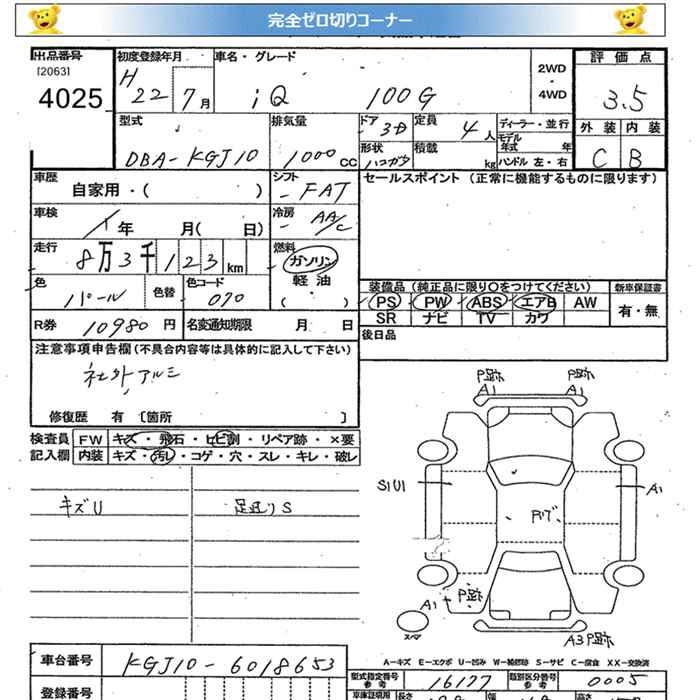 完全ゼロ切りコーナー
出品番号
[2063]
4025
初度登録年月
H 22年 7月
車名・グレード
iQ 100G
2WD
・
4WD
評価点
3.5
外装 内装
C B
型式
DBA-KGJ10
排気量
1000CC
ドア
3D
定員
4人
ディーラー・並行
モデル年式 年
形状
ハコガタ
積載 kg
ハンドル 左・右
車歴
自家用・( )
シフト
FAT
車検
年 月( 日)
冷房
AA/C
走行
8万3千123km
燃料
ガソリン
軽油
・
( )
色
パール
色替
色コード
070
R券 10980円
名変通知期限 月 日
セールスポイント (正常に機能するものに限ります)
装備品(純正品に限り○をつけてください)
PS PW ABS エアB AW
SR ナビ TV カワ
新車保証書
有・無
後日品
注意事項申告欄(不具合内容等は具体的に記入して下さい)
社外アルミ
修復歴 有 〔箇所 〕
検査員記入欄
FW キズ・飛石・ヒビ割・リペア跡・×要
内装 キズ・汚レ・コゲ・穴・スレ・キレ・破レ
キズU
足廻りS
P跡
A1
P跡
A1
S1U1
A1
A1
P跡
スペア
A3 P跡
A-キズ E-エクボ U-凹み W-補修跡 S-サビ C-腐食 XX-交換済
車台番号
KGJ10-6018653
型式指定番号
参考
16177
類別区分番号
参考
0005
登録番号
長さ
幅
高さ